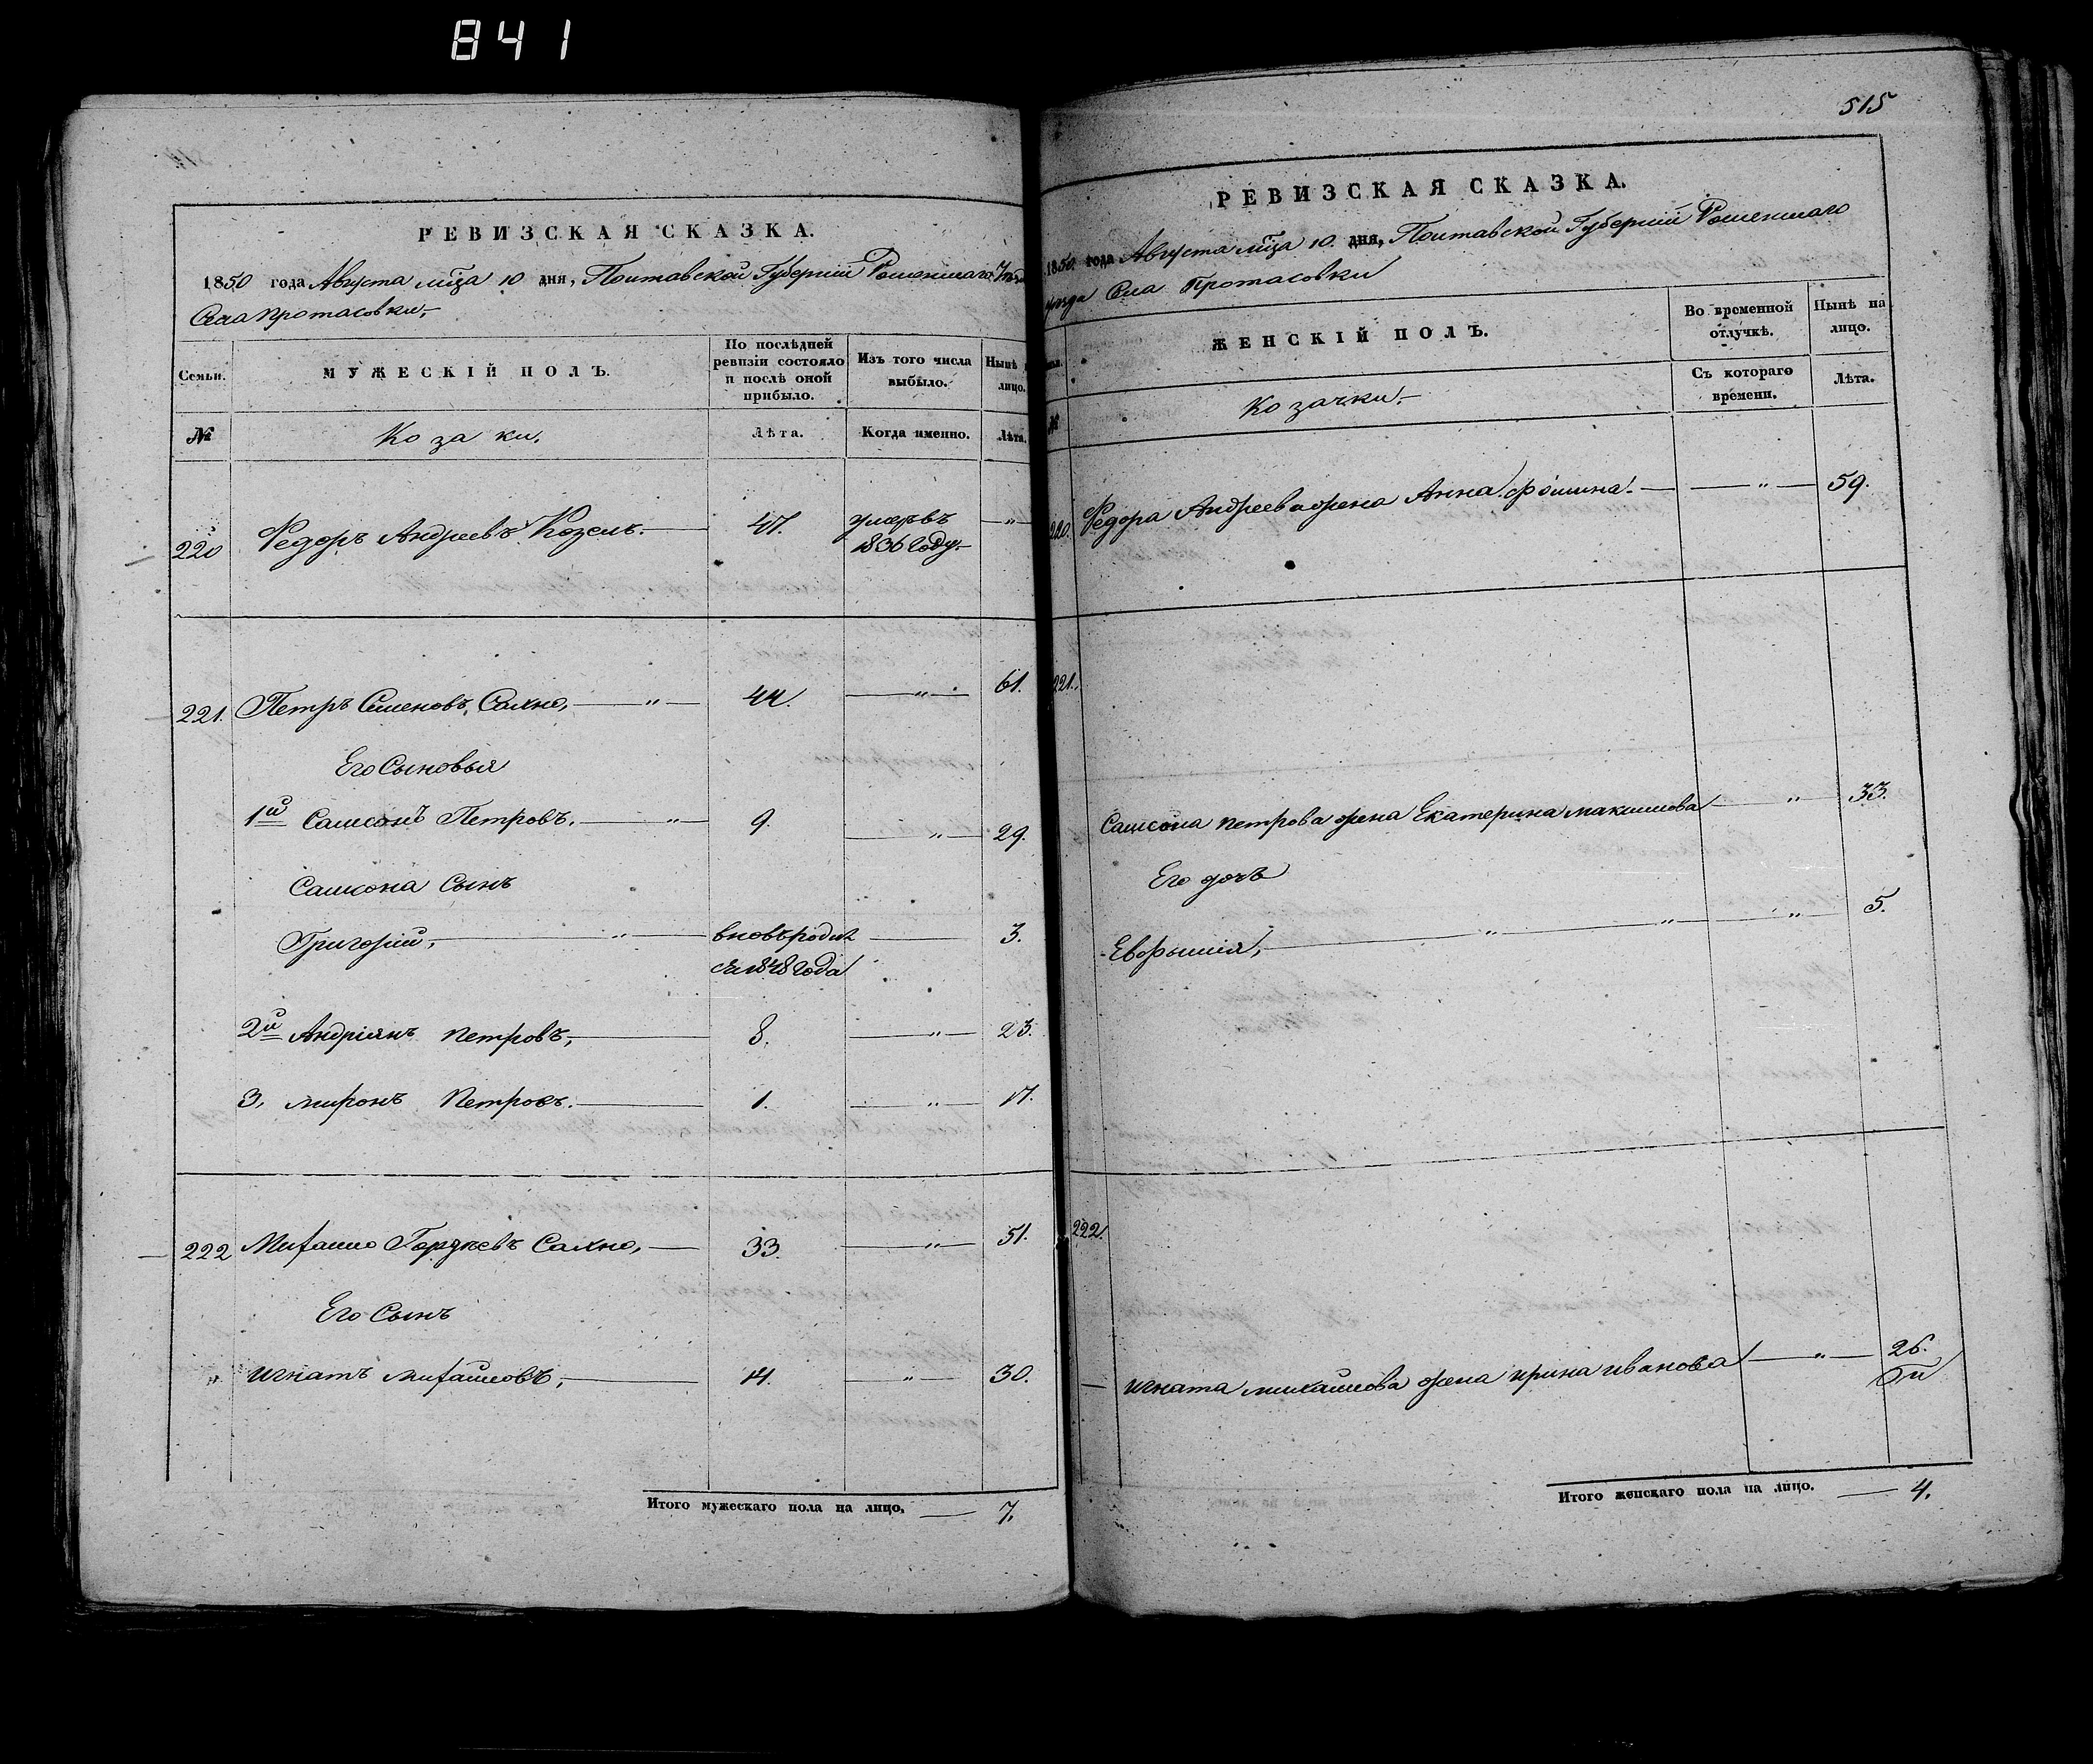 841
РЕВИЗСКАЯ СКАЗКА.
1850 года Августа мца 10 дня, Полтавской Губерніи Роменскаго Уезда
Села Протасовки,
Семьи.
МУЖЕСКІЙ ПОЛЪ.
По послѣдней ревизіи состояло и послѣ оной прибыло.
Изъ того числа выбыло.
Нынѣ лицо.
№
Козаки.
Лѣта.
Когда именно.
Лѣта.
220 Федоръ Андреевъ Козелъ. — 47. умеръ въ 1836 году. — "
221. Петръ Семеновъ Сахно, — " — 44. — " — 61.
Его Сыновья
1й Самсонъ Петровъ. — " — 9. — " — 29.
Самсона Сынъ
Григорій, — " — вновь родил. 1848 года — 3.
2й Андріянъ Петровъ, — 8. — " — 23.
3, Миронъ Петровъ. — 1. — " — 17.
222 Михайло Гордѣевъ Сахно, — 33. — " — 51.
Его Сынъ
" Игнатъ Михайловъ, — 14. — " — 30.
Итого мужескаго пола на лицо, — 7.
515
РЕВИЗСКАЯ СКАЗКА.
1850 года Августа мца 10 дня, Полтавской Губерніи Роменскаго
уезда Села Протасовки
ЖЕНСКІЙ ПОЛЪ.
Во временной отлучкѣ.
Нынѣ на лицо.
№
Козачки.
Съ котораго времени.
Лѣта.
220. Федора Андреева жена Анна Фомина. — " — 59.
221.
Самсона Петрова жена Екатерина Максимова — " — 33.
Его дочь
Евфимія, — " — " — " — 5.
222.
— Игната Михайлова жена Ирина Иванова — " — 26.
Итого женскаго пола на лицо. — 4.